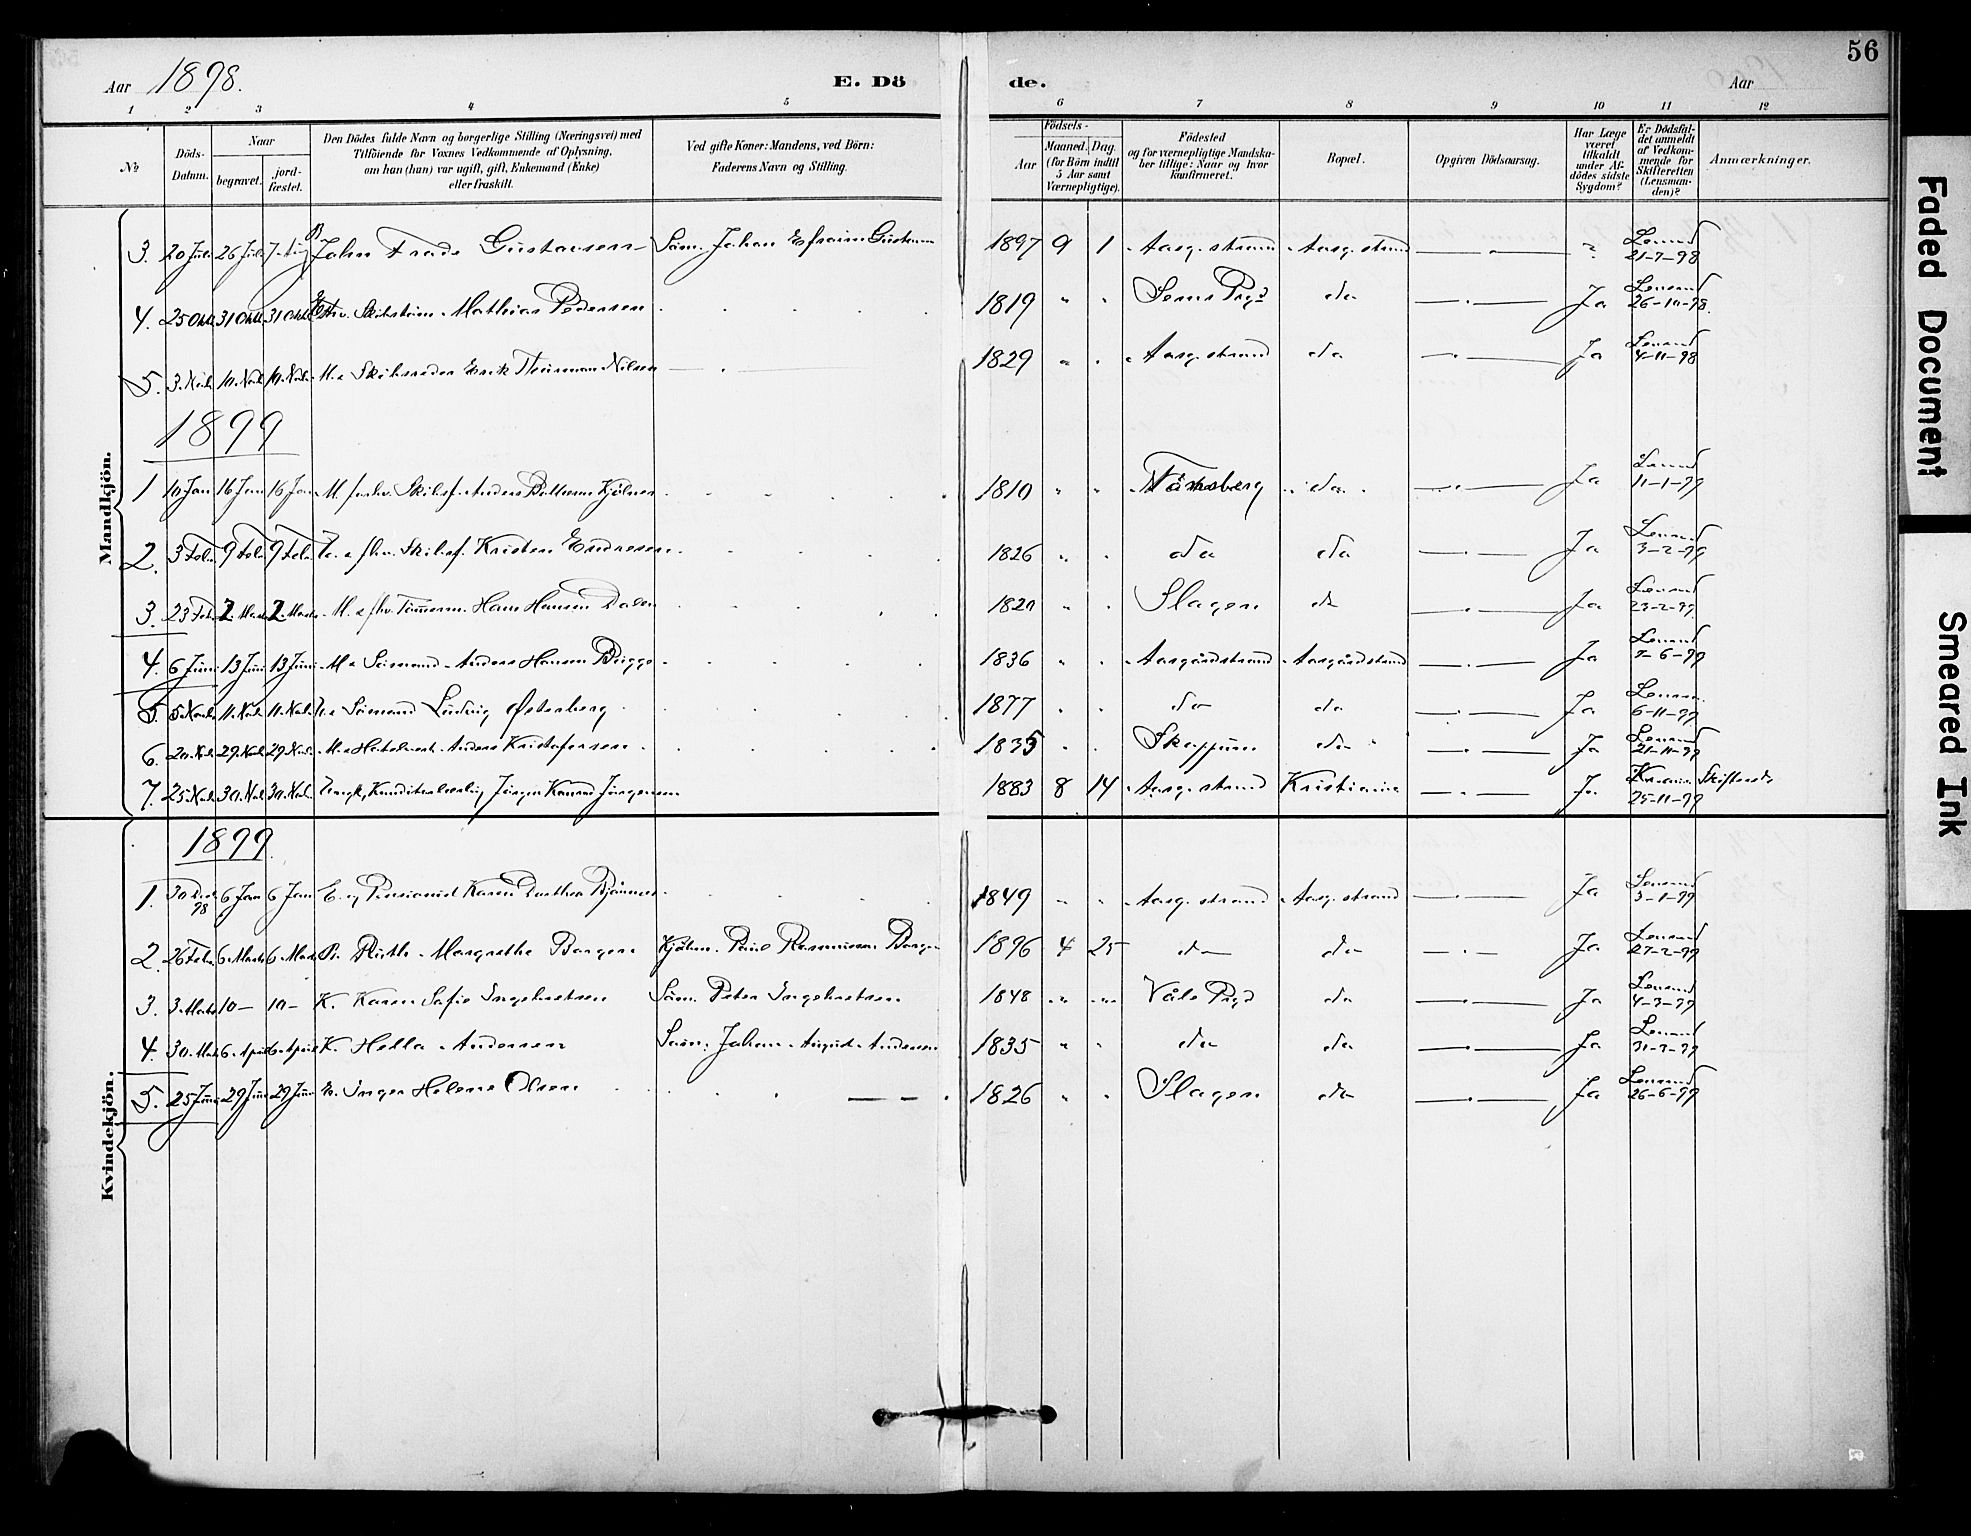 56
Aar 1898. E. Dö de. Aar
1 2 3 4 5 6 7 8 9 10 11 12
№ Döds-Datum. Naar begravet. jord-fæstet. Den Dödes fulde Navn og borgerlige Stilling (Næringsvei) med Tilföiende for Voxnes Vedkommende af Oplysning, om han (hun) var ugift, gift, Enkemand (Enke) eller fraskilt. Ved gifte Koner: Mandens, ved Börn: Faderens Navn og Stilling. Födsels- Aar Maaned. Dag. (for Börn indtil 5 Aar samt Værnepligtige). Födested og for værnepligtige Mandskaber tillige: Naar og hvor konfirmeret. Bopæl. Opgiven Dödsaarsag. Har Læge været tilkaldt under Afdödes sidste Sygdom? Er Dödsfaldet anmeldt af Vedkommende for Skifteretten (Lensmanden)? Anmærkninger.
Mandkjön.
3. 20 Juli 26 Juli 7 Aug John Gustavsen Söm. Johan Efraim Gustavsen 1897 9 1 Aasg.strand Aasg.strand — " — Lensmd 21-7-98
4. 25 Oktb 31 Oktb 31 Oktb Mathias Pedersen 1819 " " Sems Prgd do — " — Ja Lensmd 26-10-98.
5. 3. Novb. 10. Novb 10. Novb. Nilsen 1829 " " Aasg.strand do — " — Ja Lensmd 4-11-98
1899
1 10 Jan 16 Jan 16 Jan M. forhv. Skibsf. Anders 1810 " " Tönsberg do — " — Ja Lensmd 11-1-99
2. 3 Feb. 9 Feb. 9 Feb. fhv. Skibsf. Kristen Endresen 1826 " " do do — " — Ja Lensmd 3-2-99
3. 23 Feb. 2. Marts 2. Marts M. fhv. Tömmerm. Hans Hansen Dalen " " Slagen do — " — Ja Lensmd 23-2-99
4. 6 Juni 13 Juni 13 Juni M. Sömand Anders Hansen Brygge 1836 " " Aasgårdstrand Aasgårdstrand — " — Ja Lensmd 7-6-99
5. 5. Novb. 11. Novb. 11. Novb. Sömand Ludvig Österberg 1877 " " do do — " — Ja Lensmd 6-11-99
6. 20. Novb 29. Novb 29. Novb. Anders Kristofersen 1835 " " Skoppum do — " — Ja Lensmd 21-11-99
7. 25. Novb. 30. Novb. 30. Novb. Jörgen Konrad Jörgensen 1883 8 14 Aasg.strand Kristiania — " — Ja 25-11-99
Kvindekjön.
1899
1. 30 Decb 98 6 Jan 6 Jan E. og Pensionist Karen Dorthea 1849 " " Aasg.strand Aasg.strand — " — Ja Lensmd 3-1-99
2. 26 Feb. 6 Marts 6 Marts Ruth Margrethe Borgen Kjöbm. Paul Rasmussen Borgen 1896 4 25 do do — " — Ja Lensmd 27-2-99
3. 3. Marts 10 — 10 — K. Karen Sofie Ingebretsen Söm. Peter Ingebretsen 1848 " " Våle Prgd do — " — Ja Lensmd 4-3-99
4. 30. Marts 6. April 6. April K. Hella Andersen Söm. Johan August Andersen 1835 " " do do — " — Ja Lensmd 31-3-99
5. 25 Juni 29 Juni 29 Juni Inger Helene Olsen 1826 " " Slagen do — " — Ja Lensmd 26-6-99
Faded Document
Smeared Ink